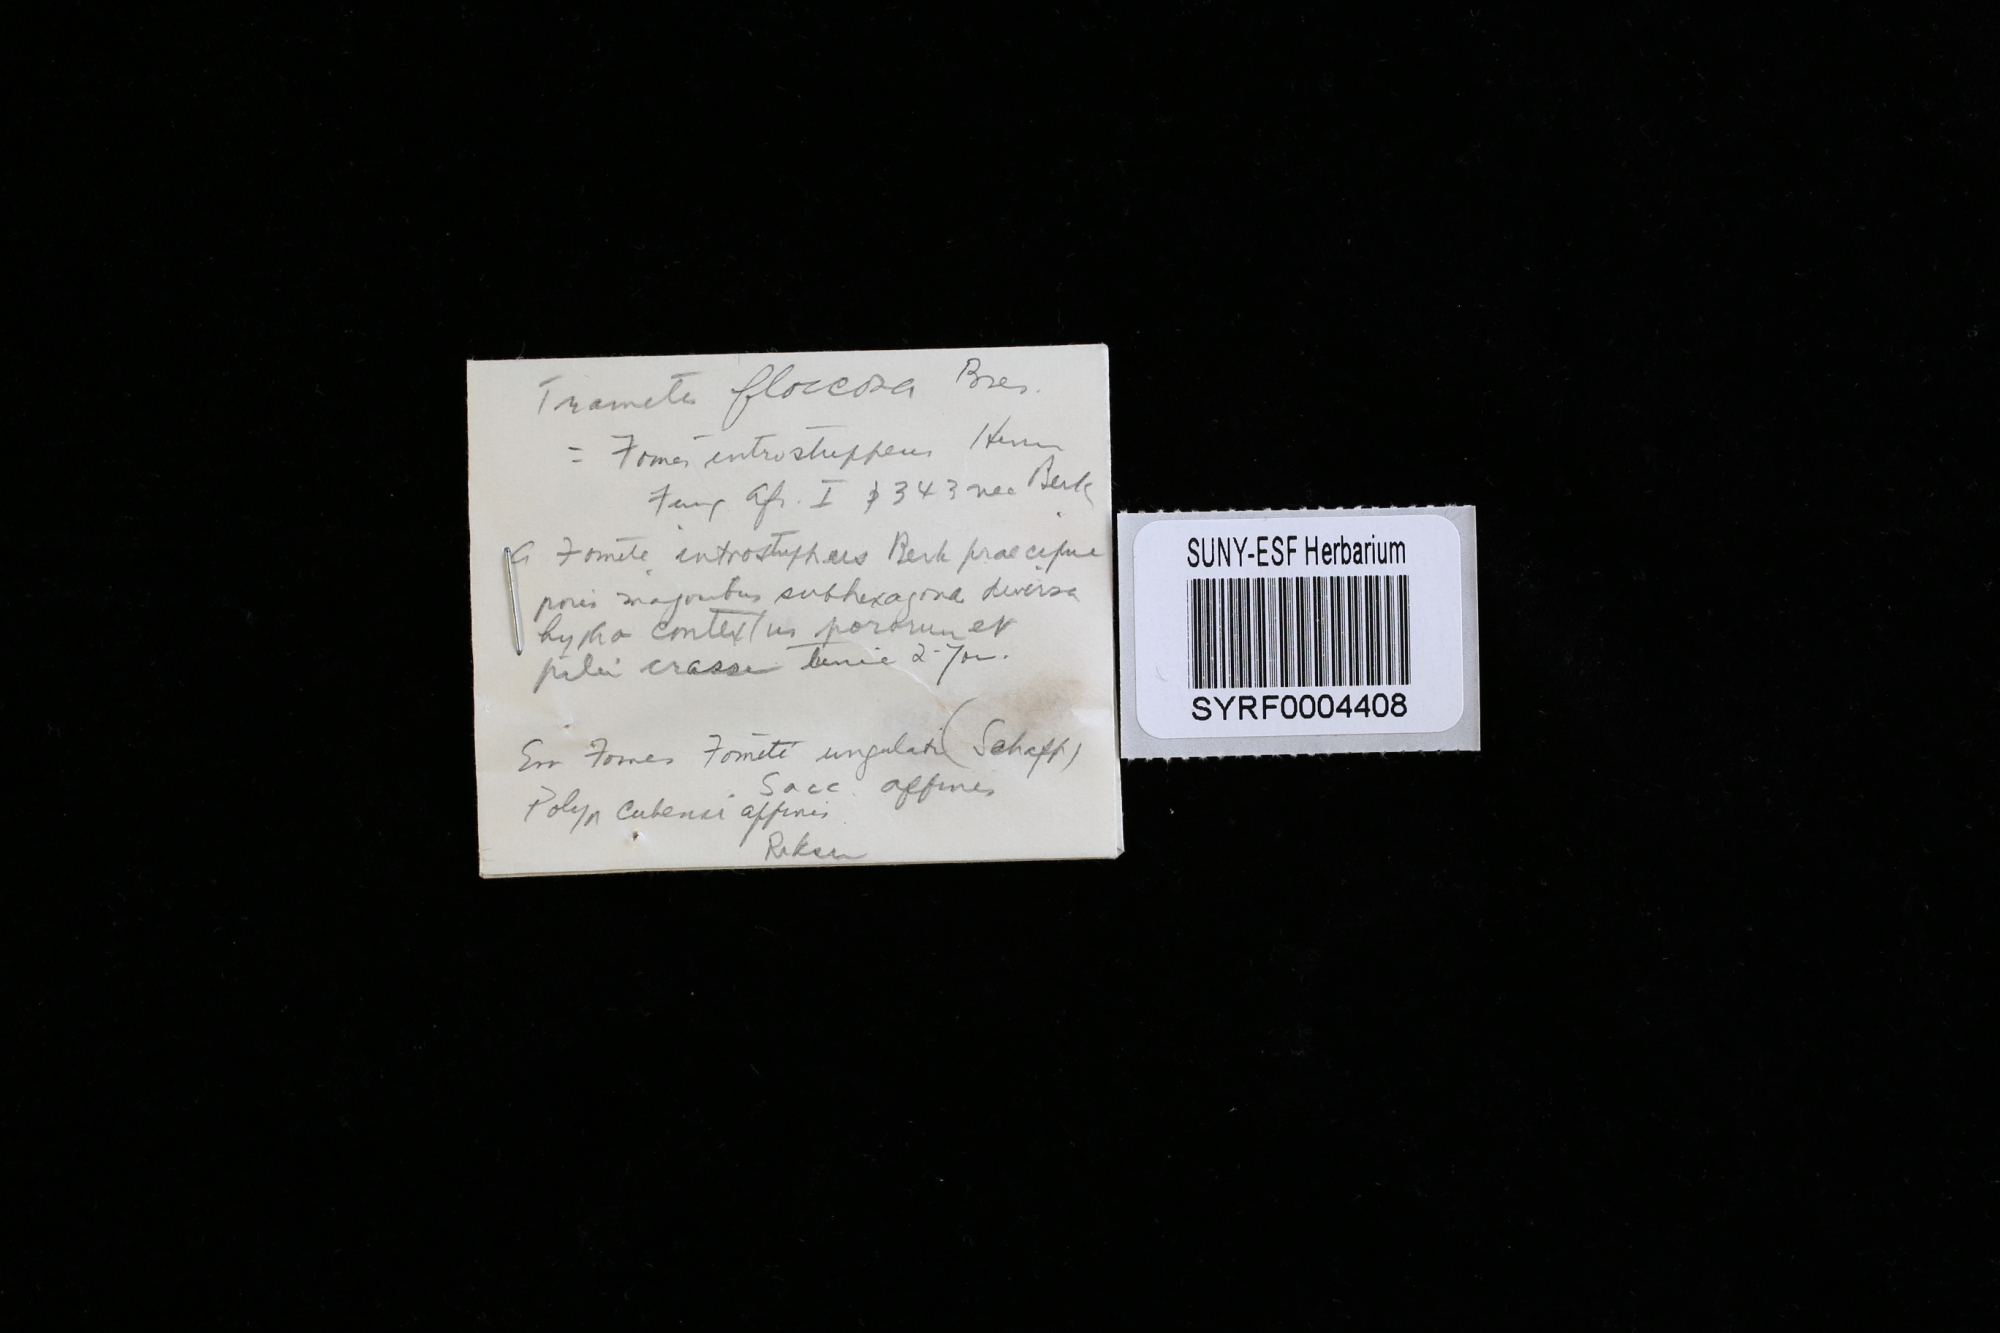 Trametes floccosa Bres.
= Fomes introstuppeus Henn
Fung Afr. I p 343 nec Berk
A Fomite introstuppeus Berk praecipue
poris majoribus subhexagona diversa
hypha contextus pororum et
pilei crasse tunic 2-7
Fomes Fomite ungulati (Schaff)
Sacc. affines
Polyp cubensi affinis
SUNY-ESF Herbarium
SYRF0004408